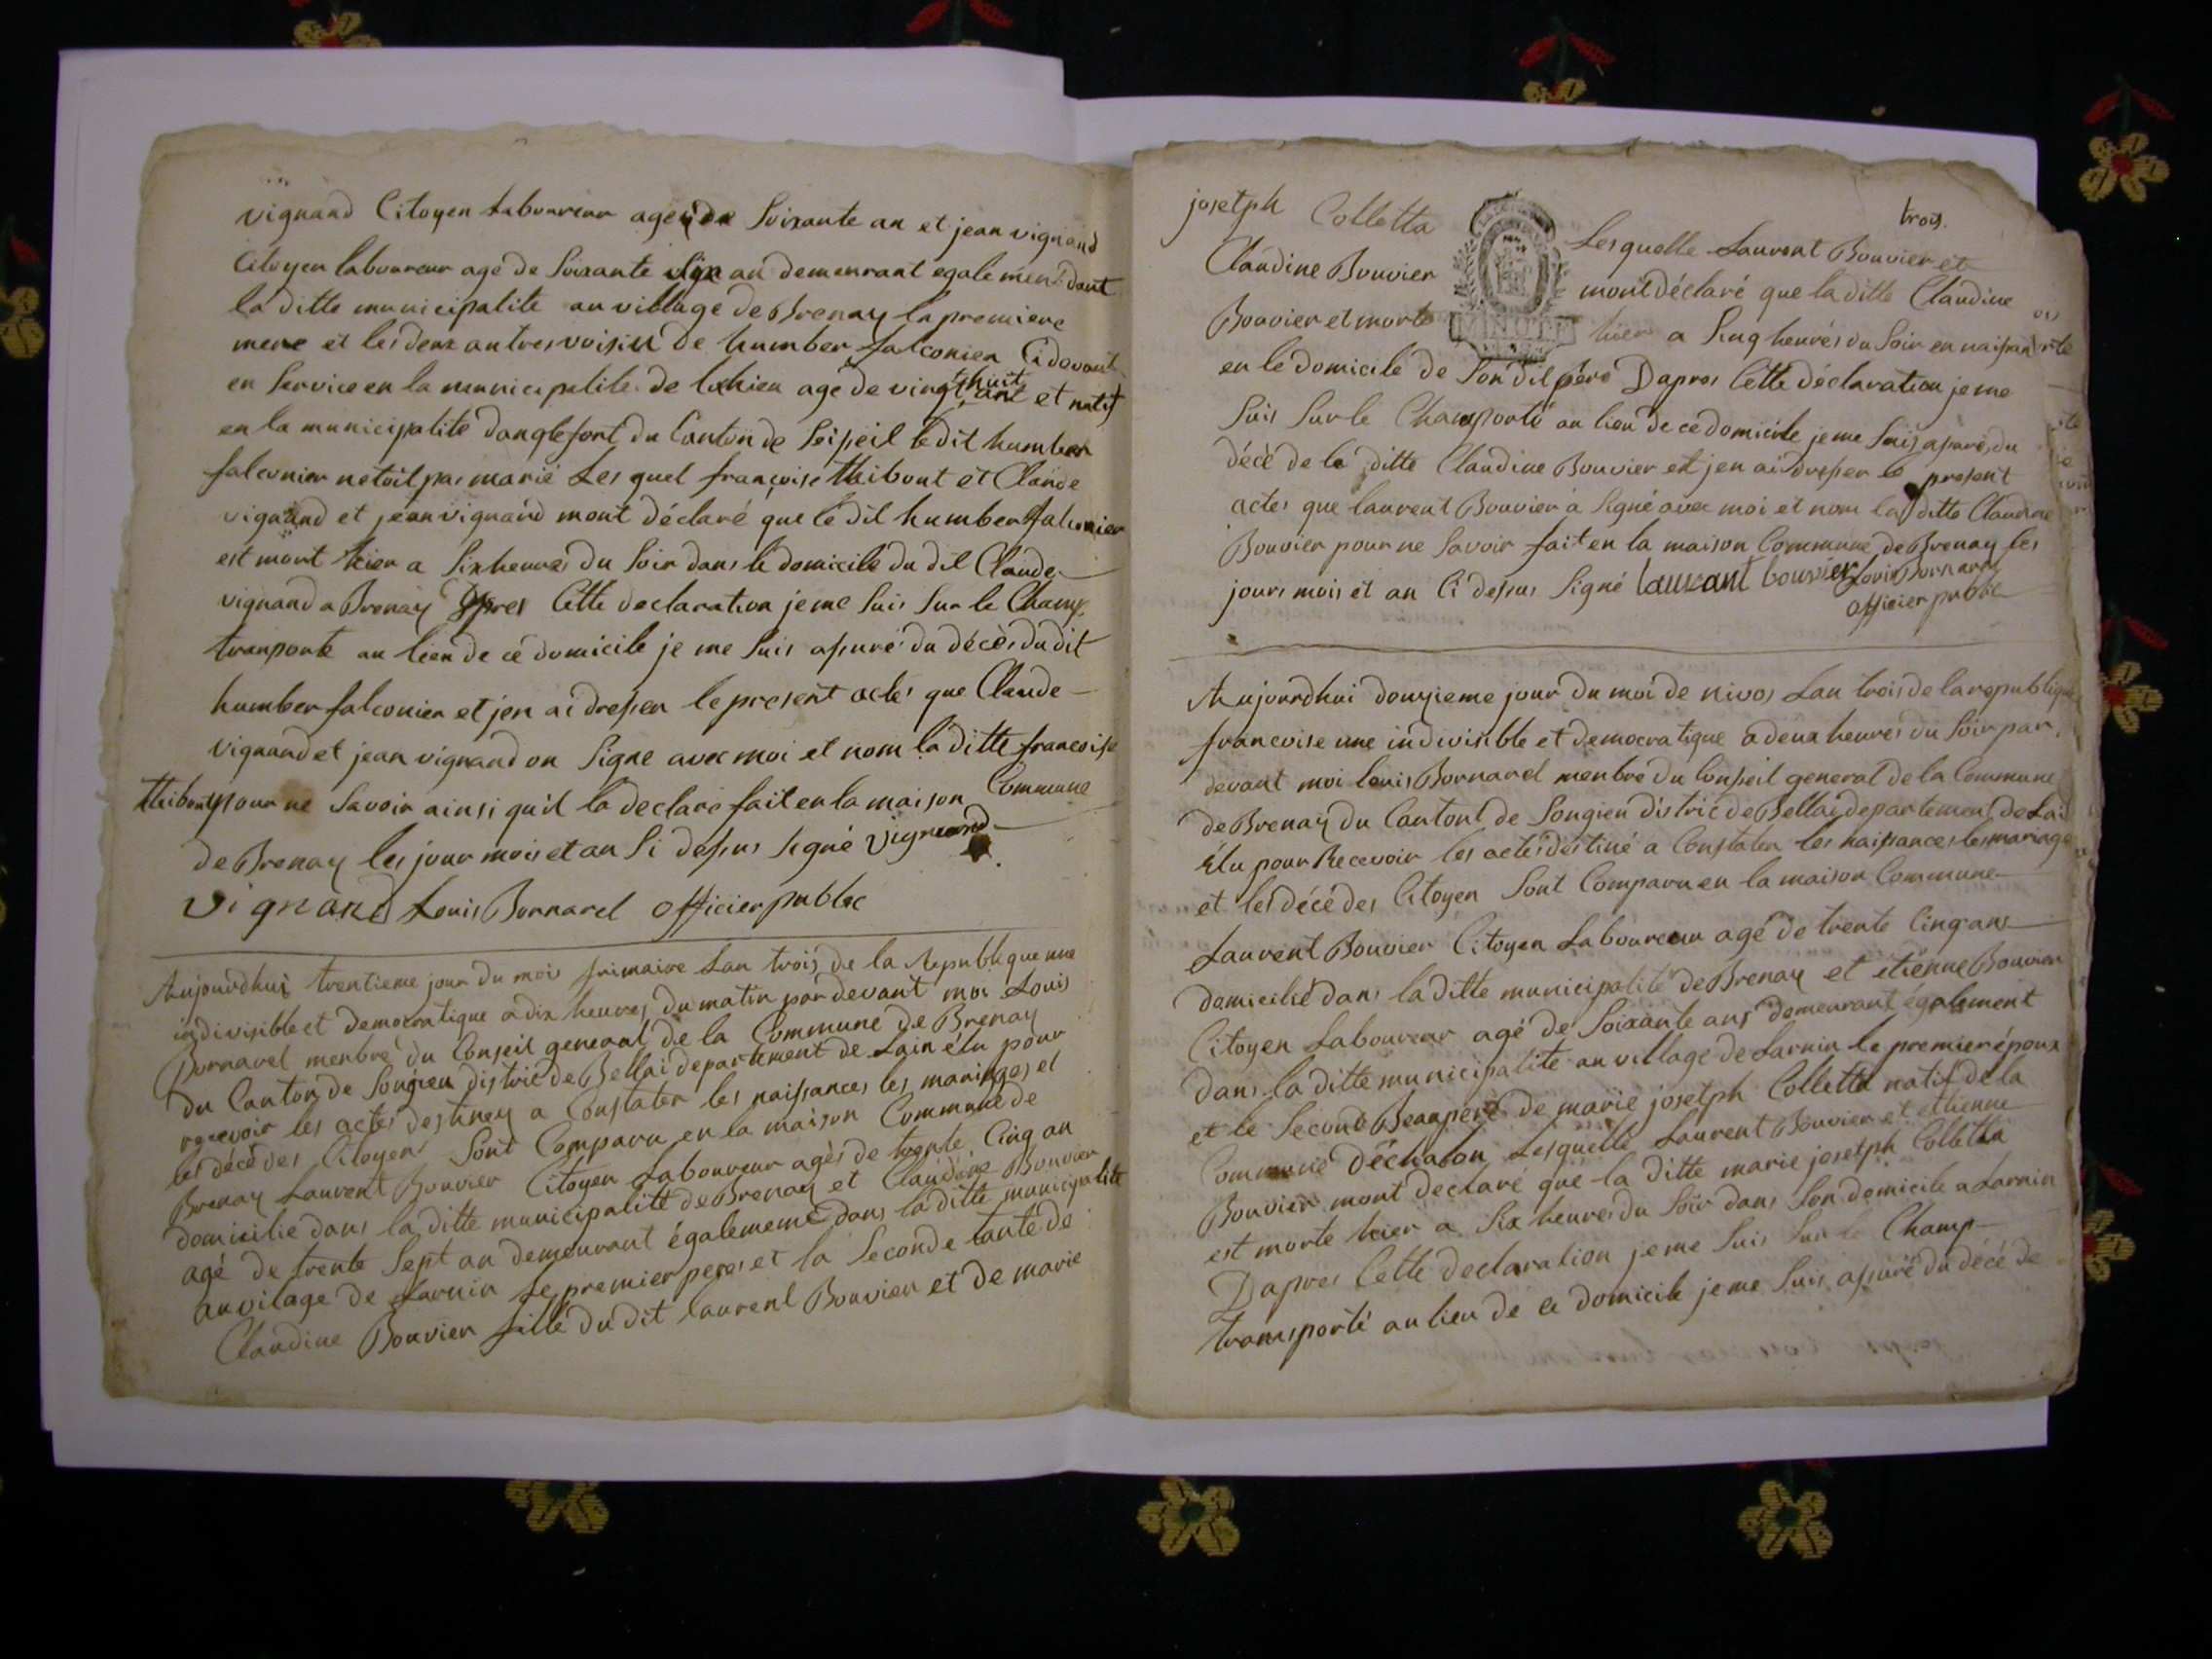 vignand Citoyen Laboureur agé de Soixante an et jean vignand
Citoyen laboureur agé de Soixante Six an demeurant egalement dant
la ditte municipalite au village de Brenay la premiere
mere et les deux autres voisin de humber falconier Cidevant
en Service en la municipalite de age de vingt huit ans et natif
en la municipalité danglefort du Canton de Seisseil le dit humber
falconier netoit pas marié Lesquel françoise thibout et Claude
vignand et jean vignand mont déclaré que le dit humber falconier
est mort hier a Six heures du Soir dans le domicile du dit Claude
vignand a Brenay Dapres Cette declaration je me Suis Sur le Champ
tranporté au lieu de ce domicile je me Suis assuré du décès du dit
humber falconier et jen ai dresser le present actes que Claude
vignand et jean vignand on Signe avec moi et nom la ditte francoise
thibout pour ne Savoir ainsi quil la declaré fait en la maison Commune
de Brenay les jour mois et an Si dessus Signé vignand
vignand Louis Bornarel officier public
Aujourdhui trentieme jour du moi frimaire Lan trois de la Republique une
indivisible et democratique a dix heures du matin par devant moi Louis
Bornarel menbre du Conseil general de la Commune de Brenay
du Canton de Songieu distric de Bellai departement de Lain élu pour
recevoir les actes destiney a Constater les naissances les mariages et
les décè des Citoyens Sont Comparu en la maison Commune de
Brenay Laurent Bouvier Citoyen Laboureur agés de trente Cinq an
domicilie dans la ditte municipalité de Brenay et Claudine Bouvier
agé de trente Sept an demeurant égalememe dans la ditte municipalité
au vilage de Larnin Le premier peres et la Seconde tante de
Claudine Bouvier fille du dit laurent Bouvier et de marie
trois.
josetph Colletta Lesquelle Laurent Bouvier et
Claudine Bouvier mont déclaré que la ditte Claudine
Bouvier et morte hier a Sinq heures du Soir en naissan
MINUTE
en le domicile de Son dit père Dapres Cette déclaration je me
Suis Sur le Champ porté au lieu de ce domicile je me Suis assuré du
décè de la ditte Claudine Bouvier et jen ai dresser le present
actes que laurent Bouvier à Signé avec moi et nom la ditte Claudine
Bouvier pour ne Savoir fait en la maison Commune de Brenay les
jours mois et an Ci dessus Signé laurant bouvier Louis Bornarel
officier public
Aujourdhui douzieme jour du moi de nivos Lan trois de la republique
francoise une indivisible et democratique a deux heures du Soir par
devant moi louis Bornarel menbre du Conseil general de la Commune
de Brenay du Cantont de Songieu distric de Bellai departement de Lai
élu pour Recevoir les actes destiné a Constater les naissances les mariage
et les décè des Citoyen Sont Comparu en la maison Commune
Laurent Bouvier Citoyen Laboureur agé de trente Cinq ans
domicilié dans la ditte municipalité de Brenay et étienne Bouvier
Citoyen Laboureur agé de Soixante ans demeurant également
dans la ditte municipalité au village de Larnin le premier époux
et le Second Beaupere de marie josetph Colletta natif de la
Commune déchalou Lesquelle Laurent Bouvier et etienne
Bouvier mont declaré que la ditte marie josetph Colletta
est morte hier a Six heures du Soir dans Son domicile a Larnin
Dapres Cette declaration je me Suis Sur le Champ
transporté au lieu de ce domicile je me Suis assuré du décé de